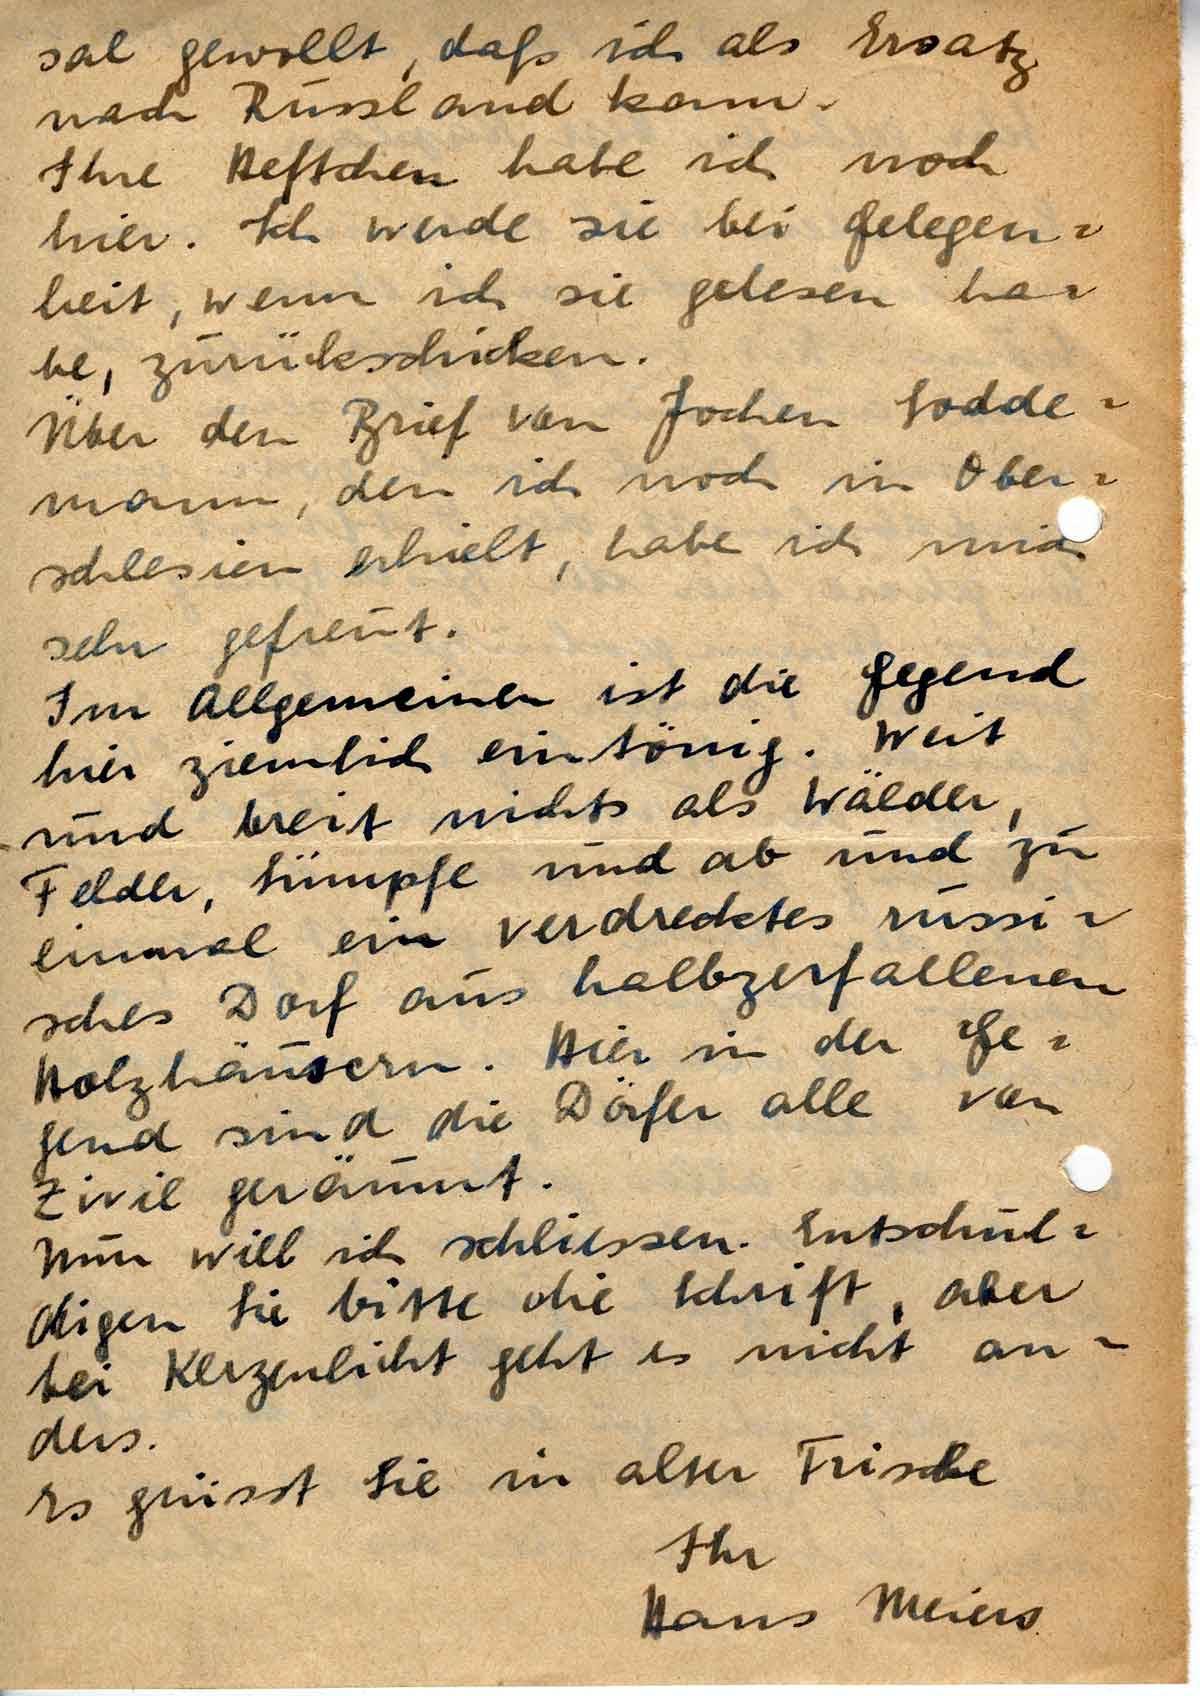 sal gewollt, dafs ich als Ersatz
nach Russland kam.
Ihre Heftchen habe ich noch
hier. Ich werde sie bei Gelegen=
heit, wenn ich sie gelesen ha=
be, zurückschicken.
Über den Brief von Jochen Sodde=
mann, den ich noch in Ober=
schlesien erhielt, habe ich mich
sehr gefreut.
Im Allgemeinen ist die Gegend
hier ziemlich eintönig. Weit
und breit nichts als Wälder,
Felder, Sümpfe und ab und zu
einmal ein verdrecktes russi=
sches Dorf aus halbzerfallenen
Holzhäusern. Hier in der Ge=
gend sind die Dörfer alle von
Zivil geräumt.
Nun will ich schliessen. Entschul=
digen Sie bitte die Schrift, aber
bei Kerzenlicht geht es nicht an=
ders.
Es grüsst Sie in alter Frische
Ihr
Hans Meiers